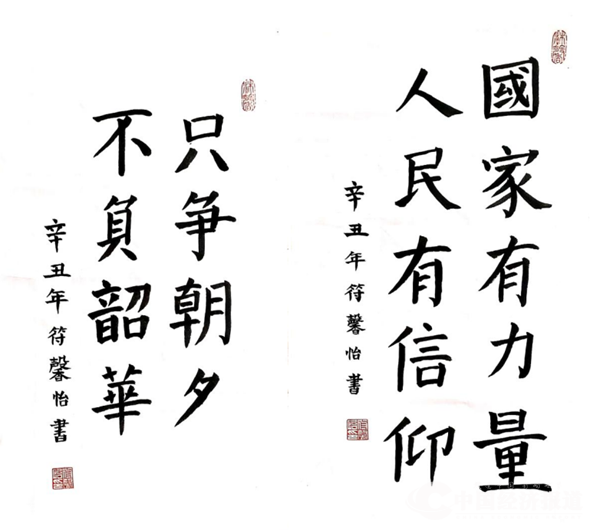 國家有力量
人民有信仰
辛丑年符馨怡書
只争朝夕
不負韶華
辛丑年符馨怡書